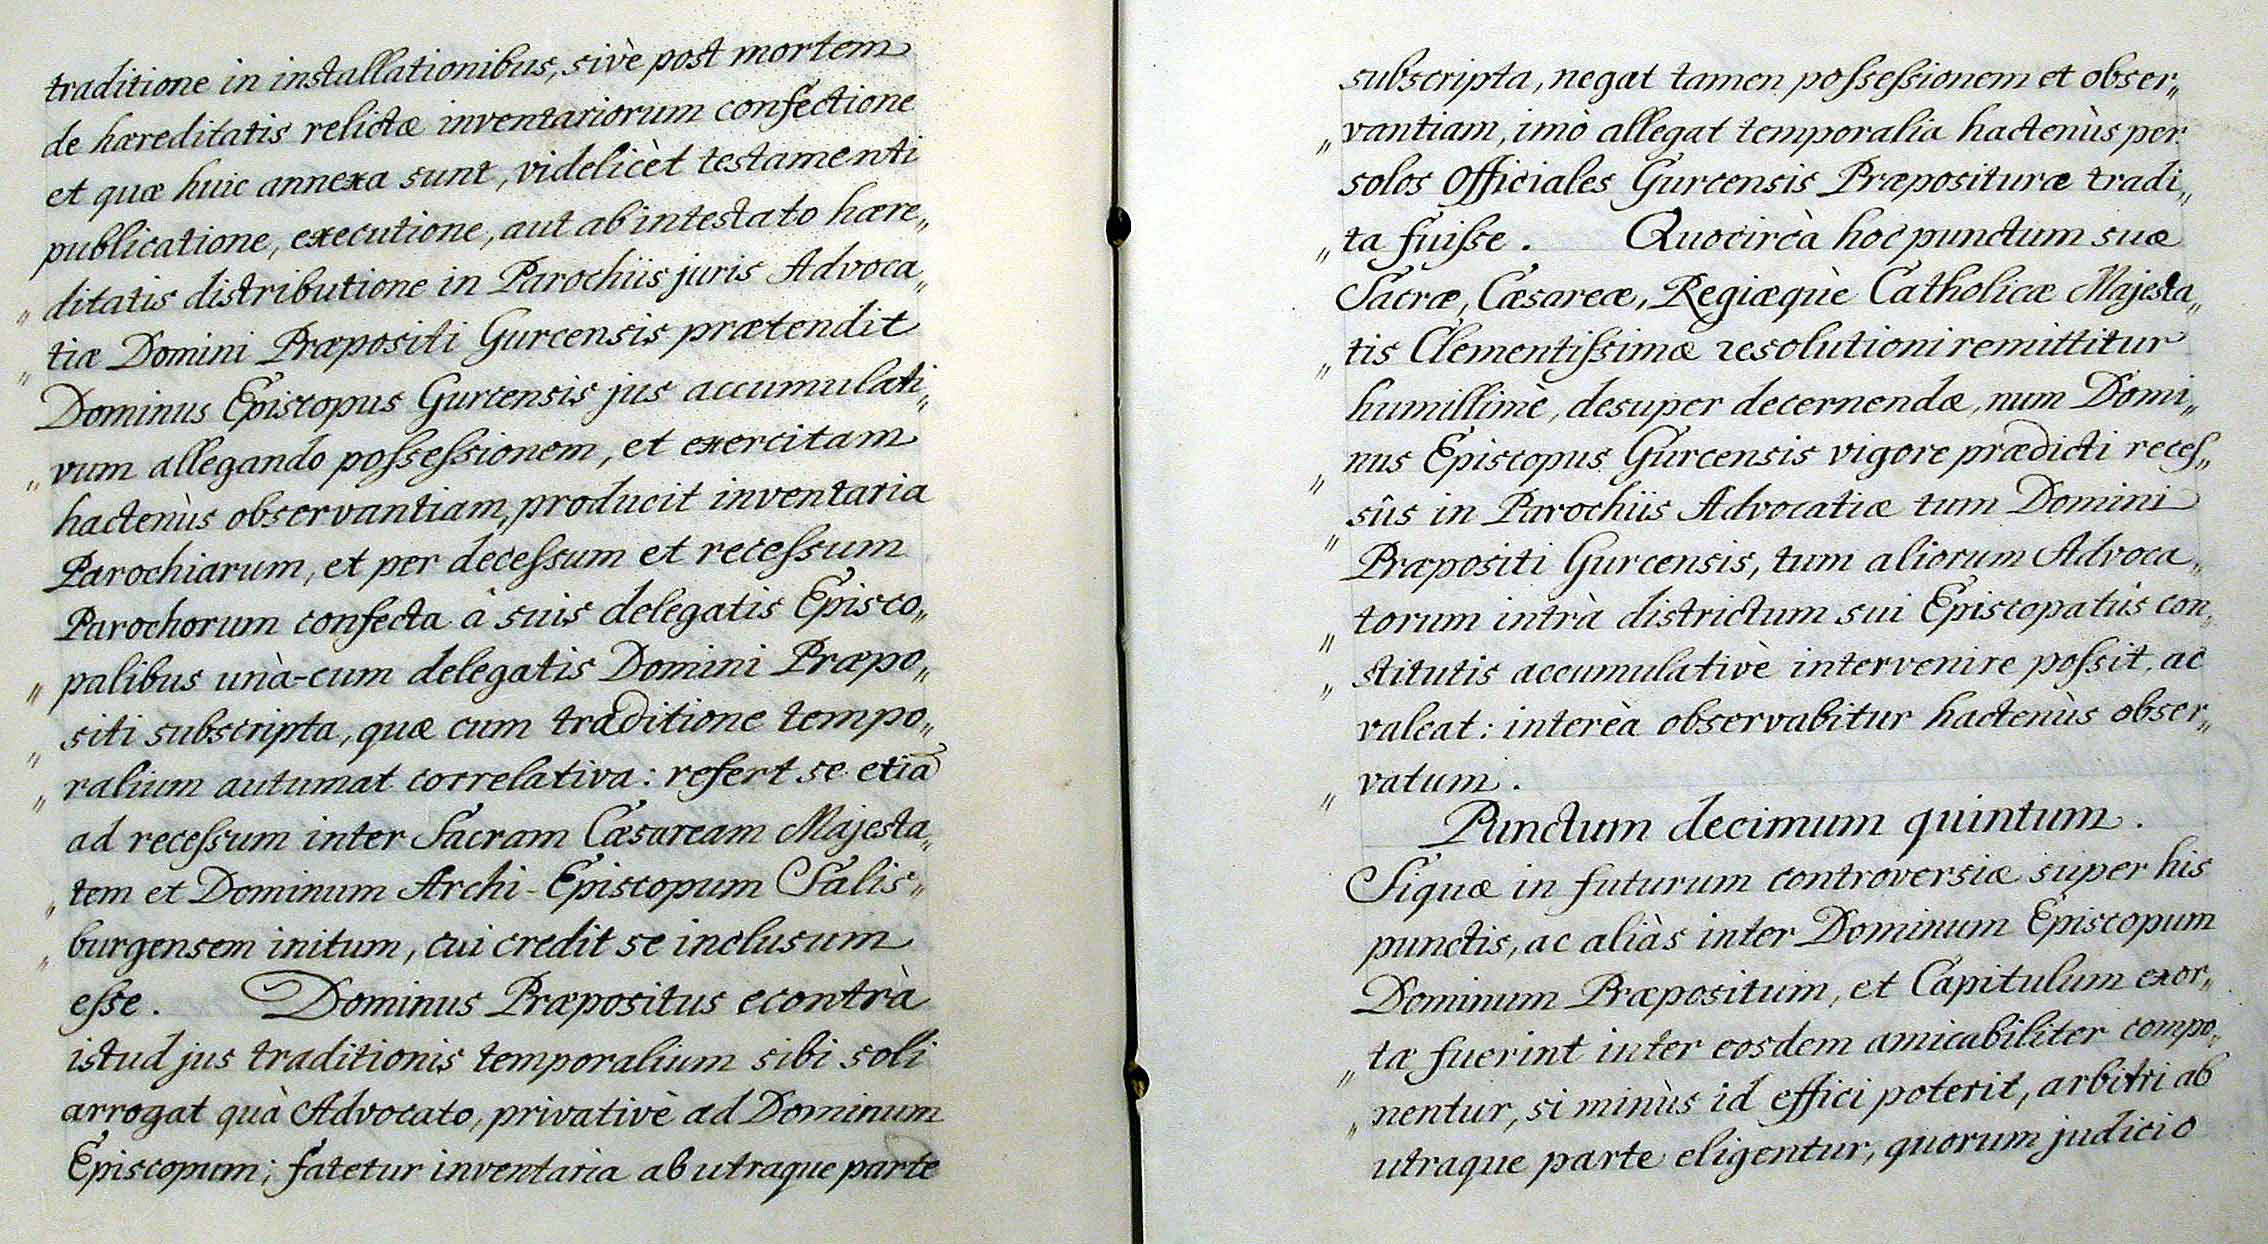 traditione in installationibus, sivè post mortem
de hæreditatis relictæ inventariorum confectione
et quæ huic annexa sunt, videlicèt testamenti
publicatione, executione, aut ab intestato hære„
„ ditatis distributione in Parochiis juris Advoca„
„ tiæ Domini Præpositi Gurcensis prætendit
Dominus Episcopus Gurcensis jus accumulati„
„ vum allegando poſseſsionem, et exercitam
hactenùs observantiam, producit inventaria
Parochiarum, et per deceſsum et receſsum
Parochorum confecta à suis delegatis Episco„
„ palibus unà-cum delegatis Domini Præpo„
„ siti subscripta, quæ cum traditione tempo„
„ ralium autumat correlativa: refert se etiā
ad receſsum inter Sacram Cæsaream Majesta„
„ tem et Dominum Archi-Episcopum Salis„
„ burgensem initum, cui credit se inclusum
eſse. Dominus Præpositus econtrà
istud jus traditionis temporalium sibi soli
arrogat quà Advocato, privativè ad Dominum
Episcopum; fatetur inventaria ab utraque parte
subscripta, negat tamen poſseſsionem et obser„
„ vantiam, imò allegat temporalia hactenùs per
solos Officiales Gurcensis Præpositura tradi„
„ ta fuiſse. Quocircà hoc punctum suæ
Sacræ, Cæsareæ, Regiæquè Catholicæ Majesta„
„ tis Clementiſsimæ resolutioni remittitur
humillimè, desuper decernendæ, num Domi„
„ nus Episcopus Gurcensis vigore prædicti receſ„
„ sûs in Parochiis Advocatiæ tum Domini
Præpositi Gurcensis, tum aliorum Advoca„
„ torum intrà districtum sui Episcopatûs con„
„ stitutis accumulativè intervenire poſsit, ac
valeat: intereà observabitur hactenùs obser„
„ vatum.
Punctum decimum quintum.
Siquæ in futurum controversiæ super his
punctis, ac aliàs inter Dominum Episcopum
Dominum Præpositum, et Capitulum exor„
„ tæ fuerint inter eosdem amicabiliter compo„
„ nentur, si minùs id effici poterit, arbitri ab
utraque parte eligentur, quorum judicio